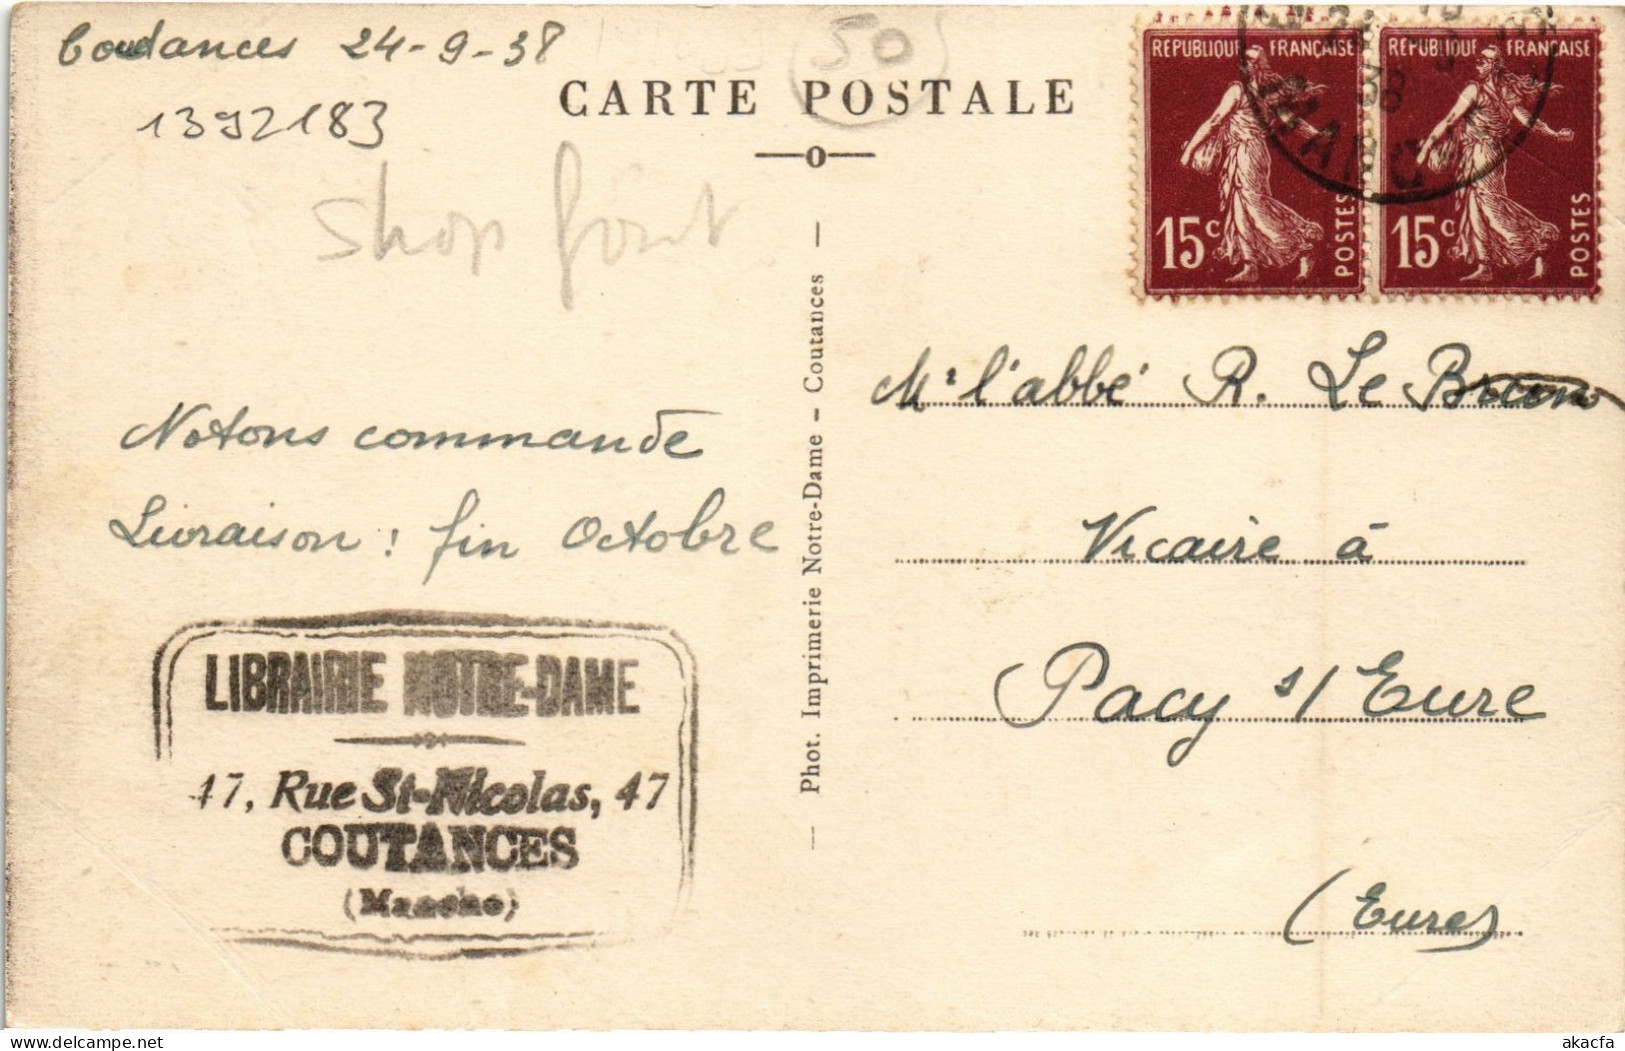 Coutances 24-9-38
50
1392183
CARTE POSTALE
shop front
RÉPUBLIQUE FRANÇAISE
15c
POSTES
RÉPUBLIQUE FRANÇAISE
15c
POSTES
38
Notons commande
Livraison : fin Octobre
LIBRAIRIE NOTRE-DAME
47, Rue St-Nicolas, 47
COUTANCES
(Manche)
— Phot. Imprimerie Notre-Dame — Coutances —
Mr l'abbé R. Le Brun
Vicaire à
Pacy s/ Eure
(Eure)
akacfa